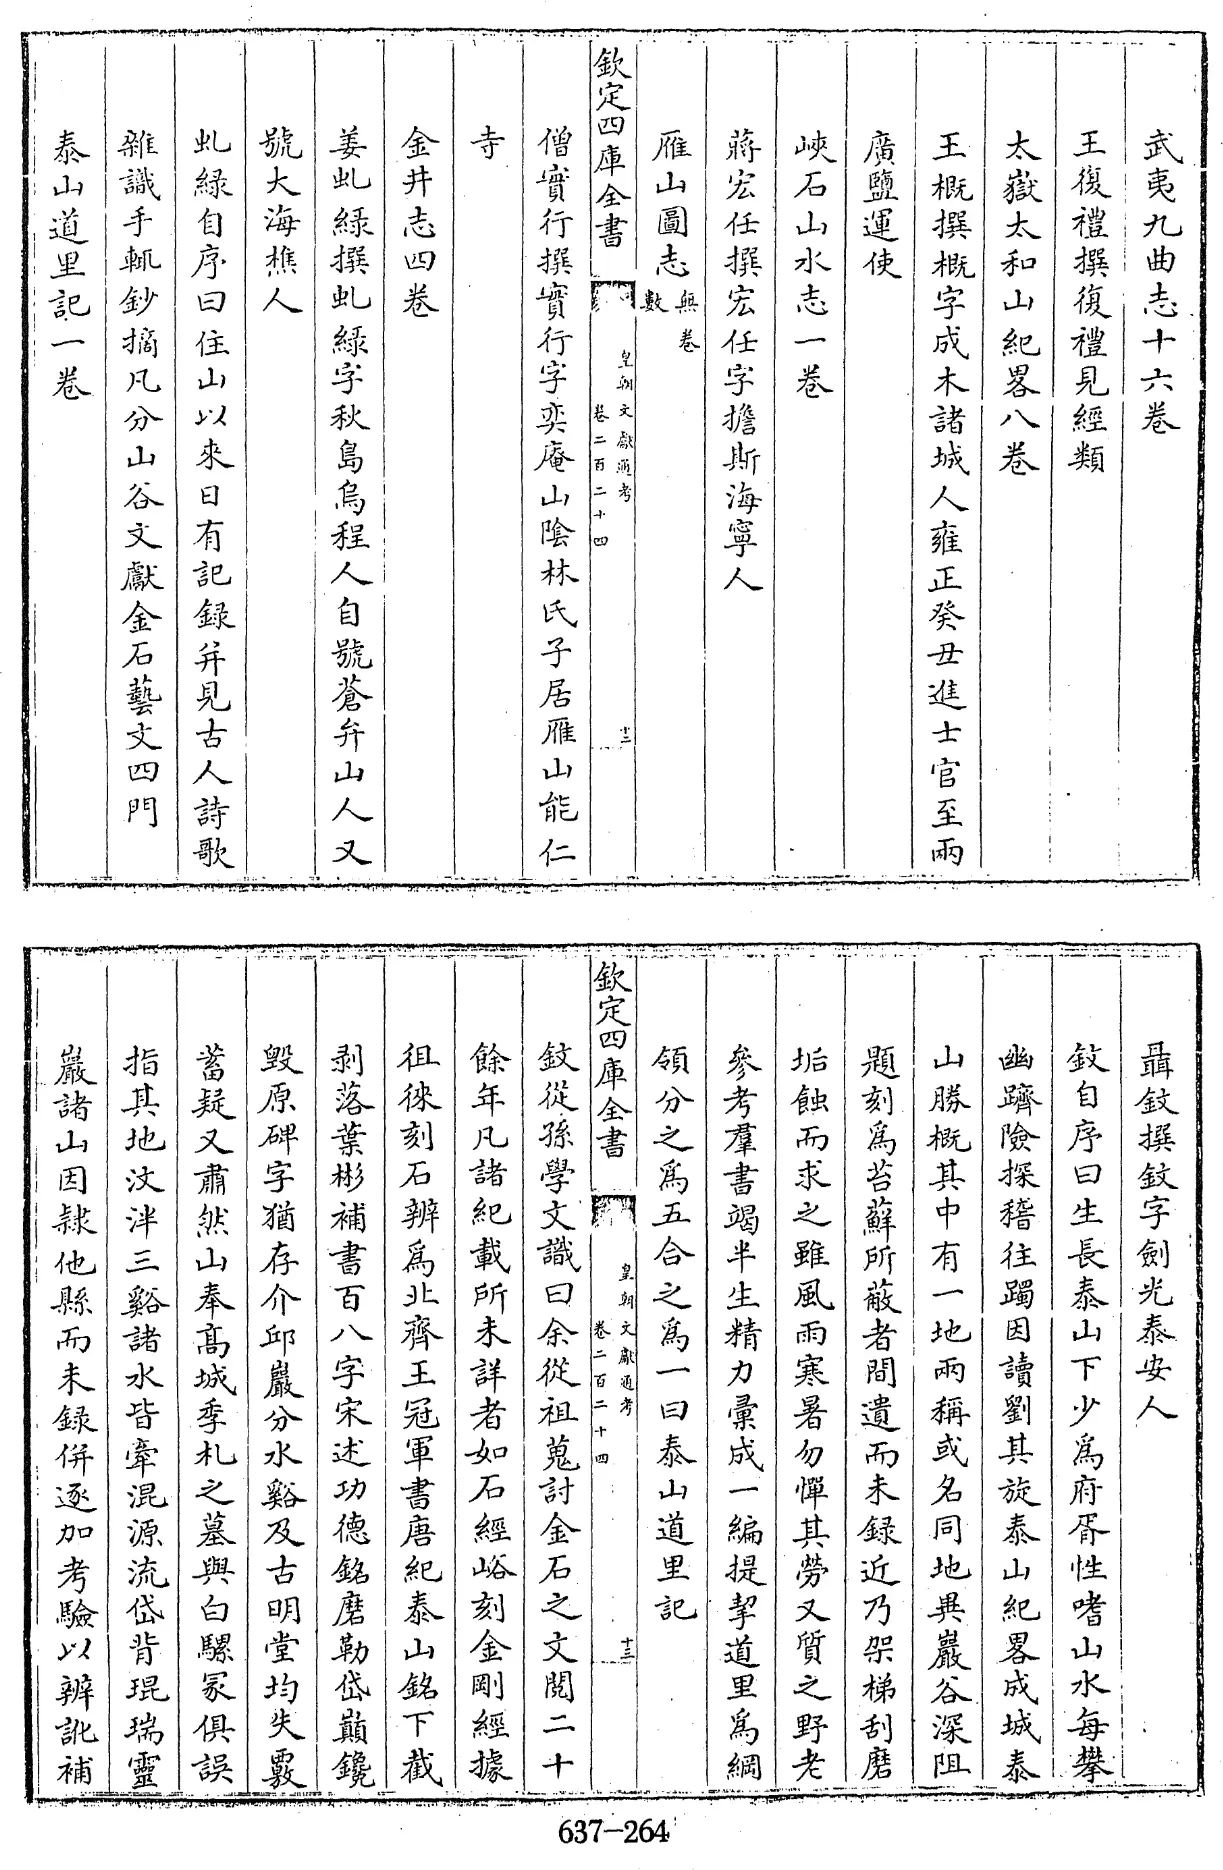 武夷九曲志十六卷
王復禮撰復禮見經類
太嶽太和山紀畧八卷
王概撰概字成木諸城人雍正癸丑進士官至兩
廣鹽運使
峽石山水志一卷
蔣宏任撰宏任字擔斯海寧人
雁山圖志無卷數
欽定四庫全書
皇朝文獻通考
卷二百二十四
十二
僧實行撰實行字奕庵山陰林氏子居雁山能仁
寺
金井志四卷
姜虬綠撰虬綠字秋島烏程人自號蒼弁山人又
號大海樵人
虬綠自序曰住山以來日有記錄并見古人詩歌
雜識手輒鈔摘凡分山谷文獻金石藝文四門
泰山道里記一卷
聶鈫撰鈫字劍光泰安人
鈫自序曰生長泰山下少爲府胥性嗜山水每攀
幽躋險探稽往躅因讀劉其旋泰山紀畧成城泰
山勝概其中有一地兩稱或名同地異巖谷深阻
題刻爲苔蘚所蔽者間遺而未録近乃架梯刮磨
垢蝕而求之雖風雨寒暑勿憚其勞又質之野老
參考羣書竭半生精力彙成一編提挈道里爲綱
領分之爲五合之爲一曰泰山道里記
欽定四庫全書
皇朝文獻通考
卷二百二十四
十三
鈫從孫學文識曰余從祖蒐討金石之文閱二十
餘年凡諸紀載所未詳者如石經峪刻金剛經據
徂徠刻石辨爲北齊王冠軍書唐紀泰山銘下截
剥落葉彬補書百八字宋述功德銘磨勒岱巔鑱
毀原碑字猶存介邱巖分水谿及古明堂均失覈
蓄疑又肅然山奉高城季札之墓與白騾冢俱誤
指其地汶泮三谿諸水皆牽混源流岱背琨瑞靈
巖諸山因隸他縣而未録併逐加考驗以辨訛補
637-264